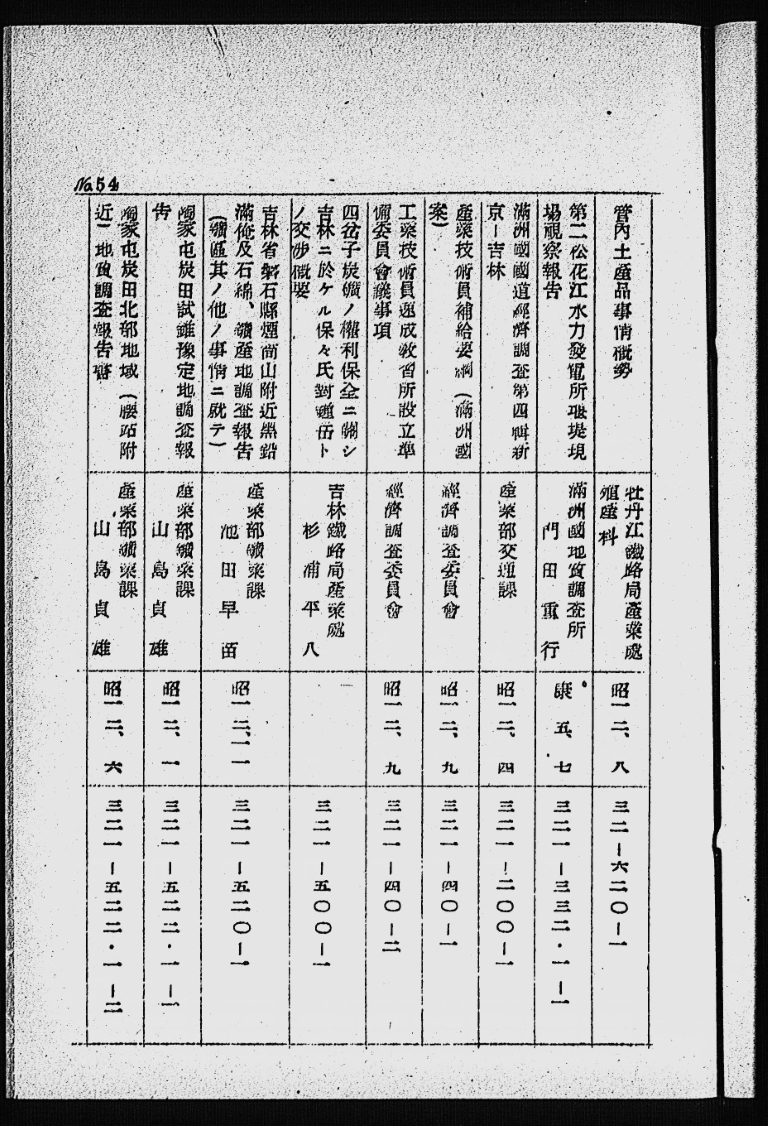 No.54
管內土產品事情概勢
牡丹江鐵路局產業處
殖產科
昭一二、八
三二一六二〇ー一
第二松花江水力發電所堰堤現
場視察報告
滿洲國地質調查所
門田重行
康五、七
三二一ー三三二・一ー一
滿洲國國道經濟調查第四輯新
京ー吉林
產業部交通課
昭一二、四
三二一ー二〇〇ー一
產業技術員補給要綱(滿洲國
案)
經濟調查委員會
昭一二、九
三二一ー四〇ー一
工業技術員速成敎習所設立準
備委員會議事項
經濟調查委員會
昭一二、九
三二一ー四〇ー二
四岔子炭礦ノ權利保全ニ關シ
吉林ニ於ケル保々氏對
ト
ノ交涉概要
吉林鐵路局產業處
杉浦平八
三二一ー五〇〇ー一
吉林省磐石縣煙筒山附近黑鉛
滿俺及石綿、鑛產地調查報告
(鑛區其ノ他ノ事情ニ就テ)
產業部鑛業課
池田早苗
昭一二、一一
三二一ー五二〇ー一
家屯炭田試錐豫定地調查報
告
產業部鑛業課
山島貞雄
昭一二、一
三二一ー五二二・一ー一
家屯炭田北部地域(腰站附
近)地質調查報告書
產業部鑛業課
山島貞雄
昭一二、六
三二一ー五二二・一ー二